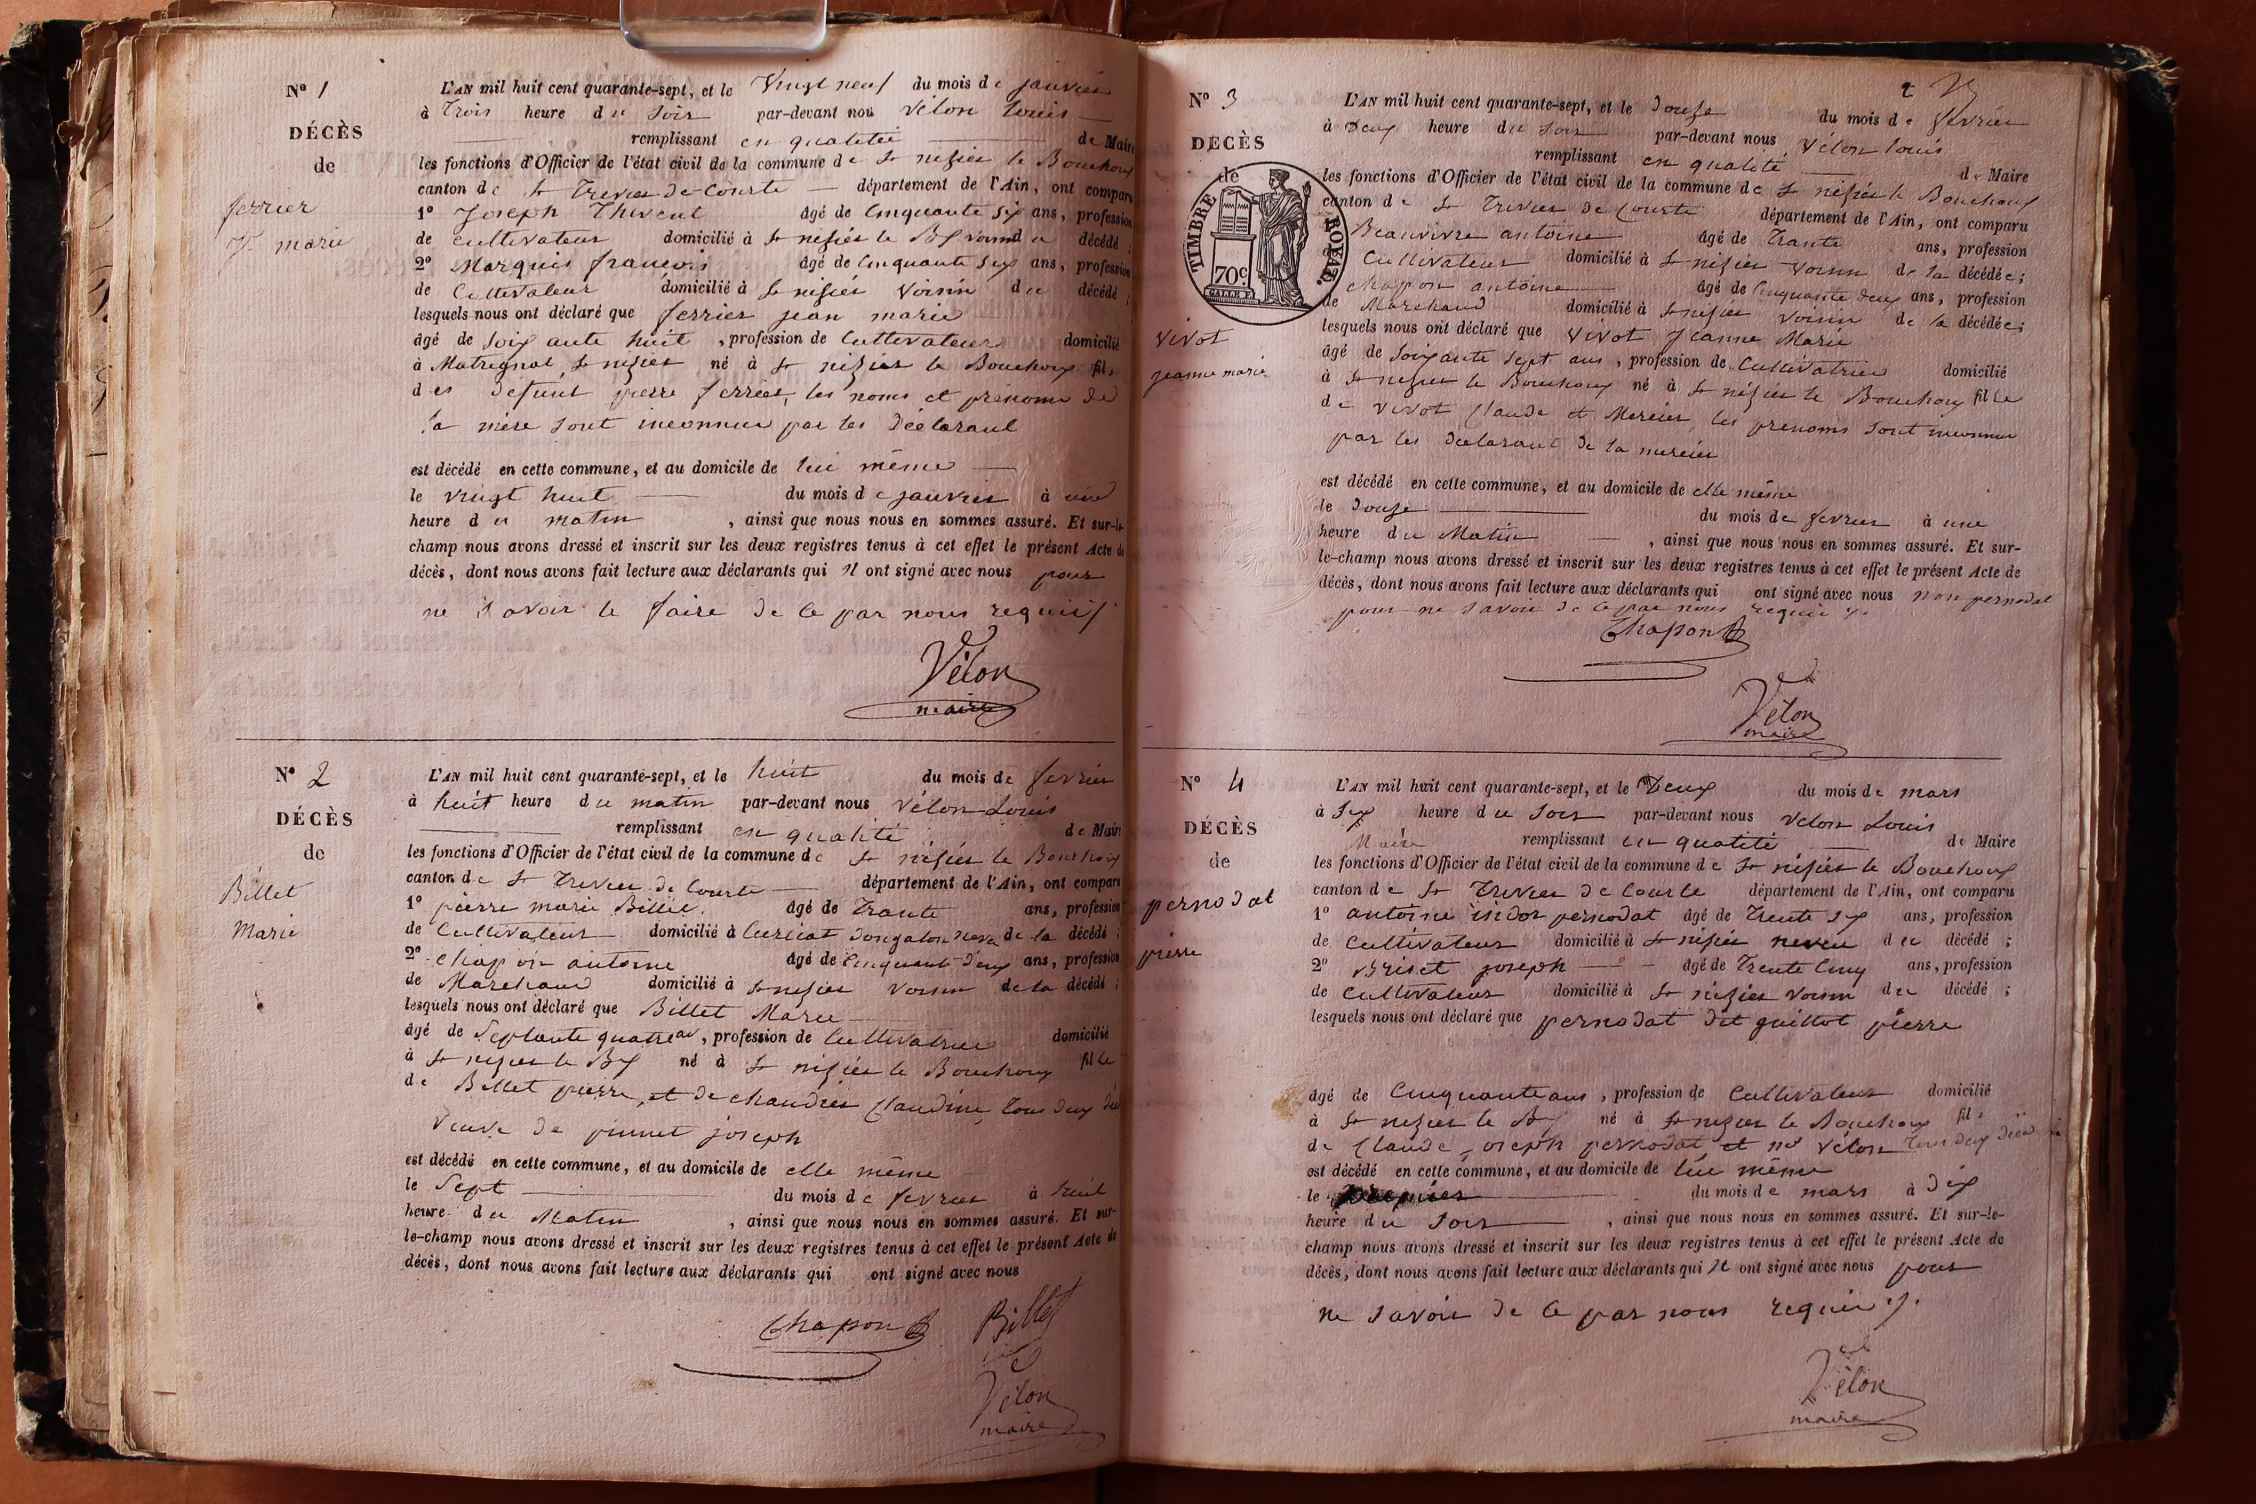 N° 1
DÉCÈS
de
ferrier
jn marie
L'AN mil huit cent quarante-sept, et le Vingt neuf du mois de janvier
à Trois heure du Soir par-devant nous Vélon Louis
remplissant en qualitée de Maire
les fonctions d'Officier de l'état civil de la commune de St nizier le Bouchoux
canton de St Trevier de Courte département de l'Ain, ont comparu
1° Joseph Thivent âgé de Cinquante six ans, profession
de cultivateur domicilié à St nizier le Bx voisind u décédé ;
2° Marquis francois âgé de Cinquante six ans, profession
de Cultivateur domicilié à St nizier Voisin du décédé ;
lesquels nous ont déclaré que ferrier jean marie
âgé de Soixante huit , profession de Cultivateur domicilié
à Matregnat St nizier né à St nizier le Bouchoux fils
des defunt pierre ferrier, les noms et prenoms de
la mère Sont inconnus par les Déclarant
est décédé en cette commune, et au domicile de lui même
le vingt huit du mois de janvier à une
heure du matin , ainsi que nous nous en sommes assuré. Et sur-le-
champ nous avons dressé et inscrit sur les deux registres tenus à cet effet le présent Acte de
décès, dont nous avons fait lecture aux déclarants qui n ont signé avec nous pour
ne Savoir le faire de ce par nous requis
Vélon
maire
N° 2
DÉCÈS
de
Billet
Marie
L'AN mil huit cent quarante-sept, et le huit du mois de fevrier
à huit heure du matin par-devant nous Vélon Louis
remplissant en qualité de Maire
les fonctions d'Officier de l'état civil de la commune de St nizier le Bouchoux
canton de St Trevier de Courte département de l'Ain, ont comparu
1° pierre marie Billet âgé de Trante ans, profession
de Cultivateur domicilié à Curciat dongalon neveu de la décédé ;
2° chapon antoine âgé de Cinquante deux ans, profession
de Marchand domicilié à St nizier Voisin de la décédé ;
lesquels nous ont déclaré que Billet Marie
âgé de Septante quatre ans, profession de Cultivatrice domicilié
à St nizier le Bx né à St nizier le Bouchoux fille
de Billet pierre, et de chandrier Claudine, tous deux
Veuve de pinnet joseph
est décédé en cette commune, et au domicile de elle même
le Sept du mois de fevrier à huit
heure du Matin , ainsi que nous nous en sommes assuré. Et sur-
le-champ nous avons dressé et inscrit sur les deux registres tenus à cet effet le présent Acte de
décès, dont nous avons fait lecture aux déclarants qui ont signé avec nous
Chapon Billet
Vélon
maire
2
N° 3
DÉCÈS
de
TIMBRE ROYAL
70 c.
vivot
jeanne marie
L'AN mil huit cent quarante-sept, et le Douze du mois de fevrier
à Deux heure du Soir par-devant nous Vélon Louis
remplissant en qualité de Maire
les fonctions d'Officier de l'état civil de la commune de St nizier le Bouchoux
canton de St Trevier de Courte département de l'Ain, ont comparu
Beauvivre antoine âgé de Trante ans, profession
Cultivateur domicilié à St nizier voisin de la décédée ;
chapon antoine âgé de Cinquante deux ans, profession
de Marchand domicilié à St nizier Voisin de la décédée ;
lesquels nous ont déclaré que Vivot Jeanne Marie
âgé de Soixante Sept ans, profession de Cultivatrice domicilié
à St nizier le Bouchoux né à St nizier le Bouchoux fille
de Vivot Claude et Mercier, les prenoms Sont inconnu
par les declarant de la mercier
est décédé en cette commune, et au domicile de elle même
le Douze du mois de fevrier à une
heure du Matin , ainsi que nous nous en sommes assuré. Et sur-
le-champ nous avons dressé et inscrit sur les deux registres tenus à cet effet le présent Acte de
décès, dont nous avons fait lecture aux déclarants qui ont signé avec nous non pernodat
pour ne Savoir de ce par nous requis
Chapon
Vélon
maire
N° 4
DÉCÈS
de
pernodat
pierre
L'AN mil huit cent quarante-sept, et le Deux du mois de mars
à Six heure du Soir par-devant nous Vélon Louis
Maire remplissant en qualité de Maire
les fonctions d'Officier de l'état civil de la commune de St nizier le Bouchoux
canton de St Trevier de Courte département de l'Ain, ont comparu
1° antoine isidor pernodat âgé de Trente six ans, profession
de Cultivateur domicilié à St nizier neveu du décédé ;
2° Briset joseph âgé de Trente Cinq ans, profession
de Cultivateur domicilié à St nizier voisin du décédé ;
lesquels nous ont déclaré que pernodat dit guillot pierre
âgé de Cinquante ans , profession de Cultivateur domicilié
à St nizier le Bx né à St nizier le Bouchoux fils
de Claude joseph pernodat et Vélon tous deux
est décédé en cette commune, et au domicile de lui même
le premier du mois de mars à Dix
heure du Soir , ainsi que nous nous en sommes assuré. Et sur-le-
champ nous avons dressé et inscrit sur les deux registres tenus à cet effet le présent Acte de
décès, dont nous avons fait lecture aux déclarants qui n ont signé avec nous pour
ne Savoir de ce par nous requis
Vélon
maire